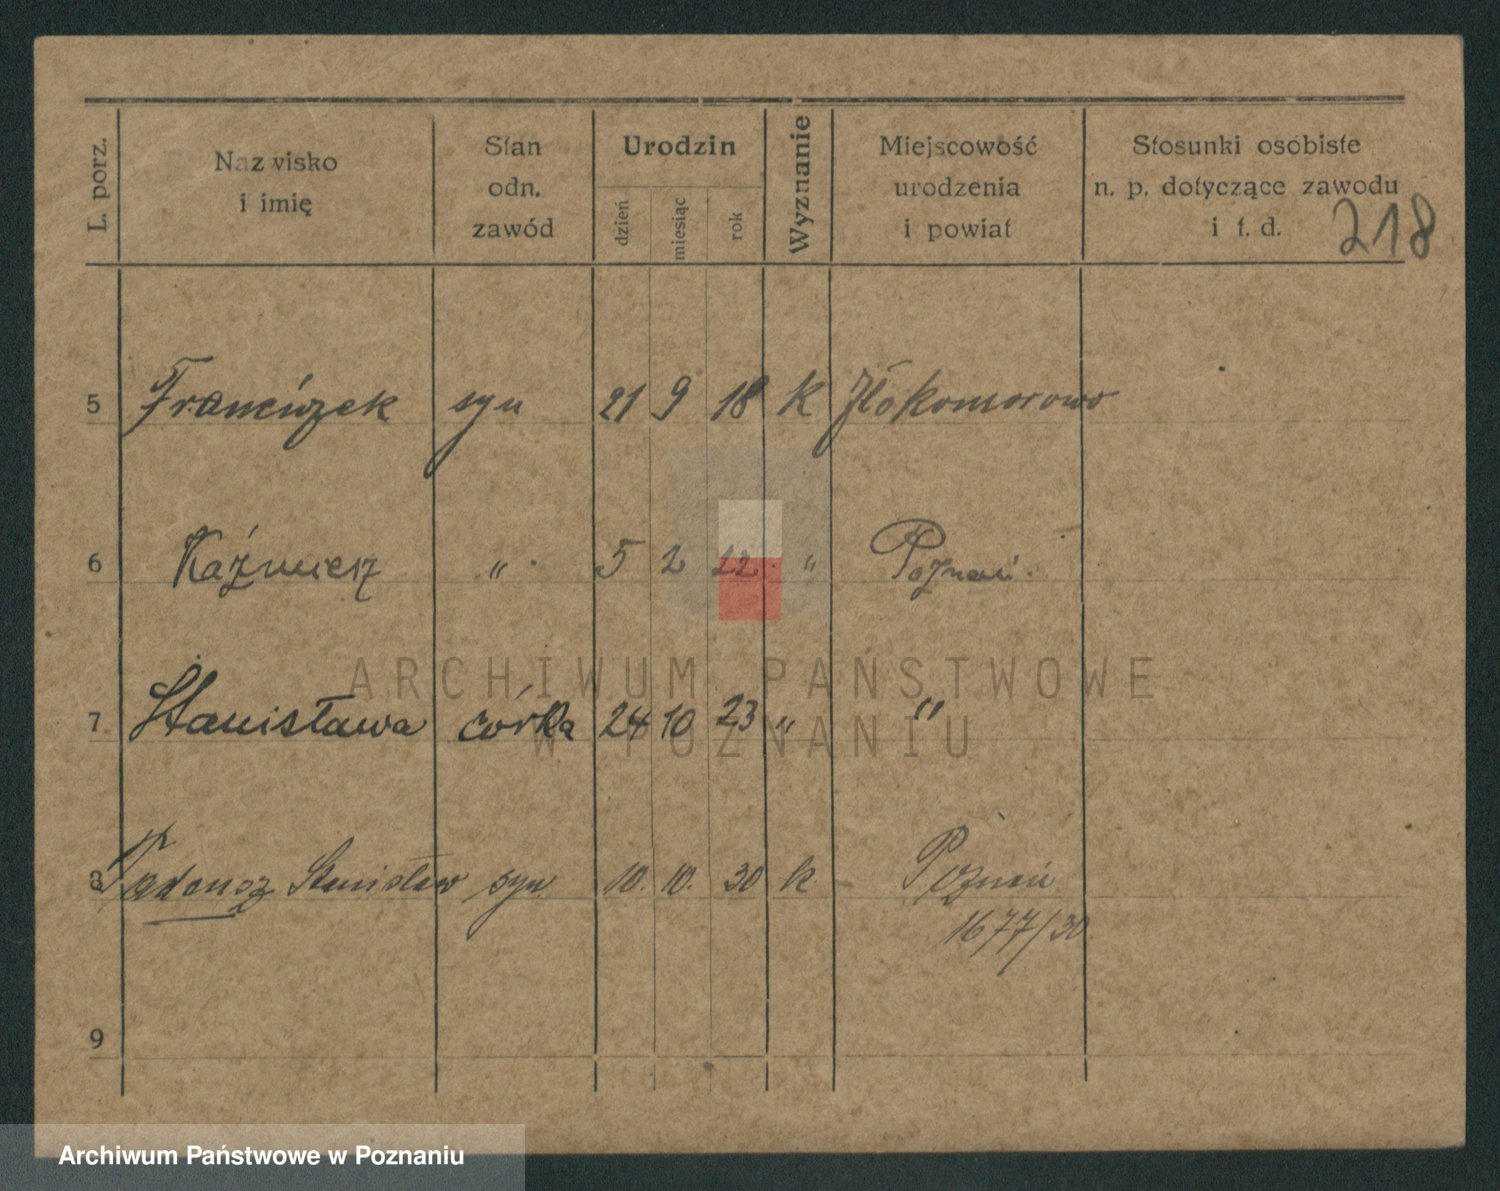 L. porz.
Nazwisko
i imię
Stan
odn.
zawód
Urodzin
dzień
miesiąc
rok
Wyznanie
Miejscowość
urodzenia
i powiat
Stosunki osobiste
n. p. dotyczące zawodu
i t. d.
218
5 Franciszek syn 21 9 18 k
6 Kaźmierz " 5 2 22 " Poznań.
ARCHIWUM PAŃSTWOWE
W POZNANIU
7 Stanisława córka 24 10 23 " "
8 Tadeusz Stanisław syn 10. 10. 30 k Poznań
1677/30
9
Archiwum Państwowe w Poznaniu